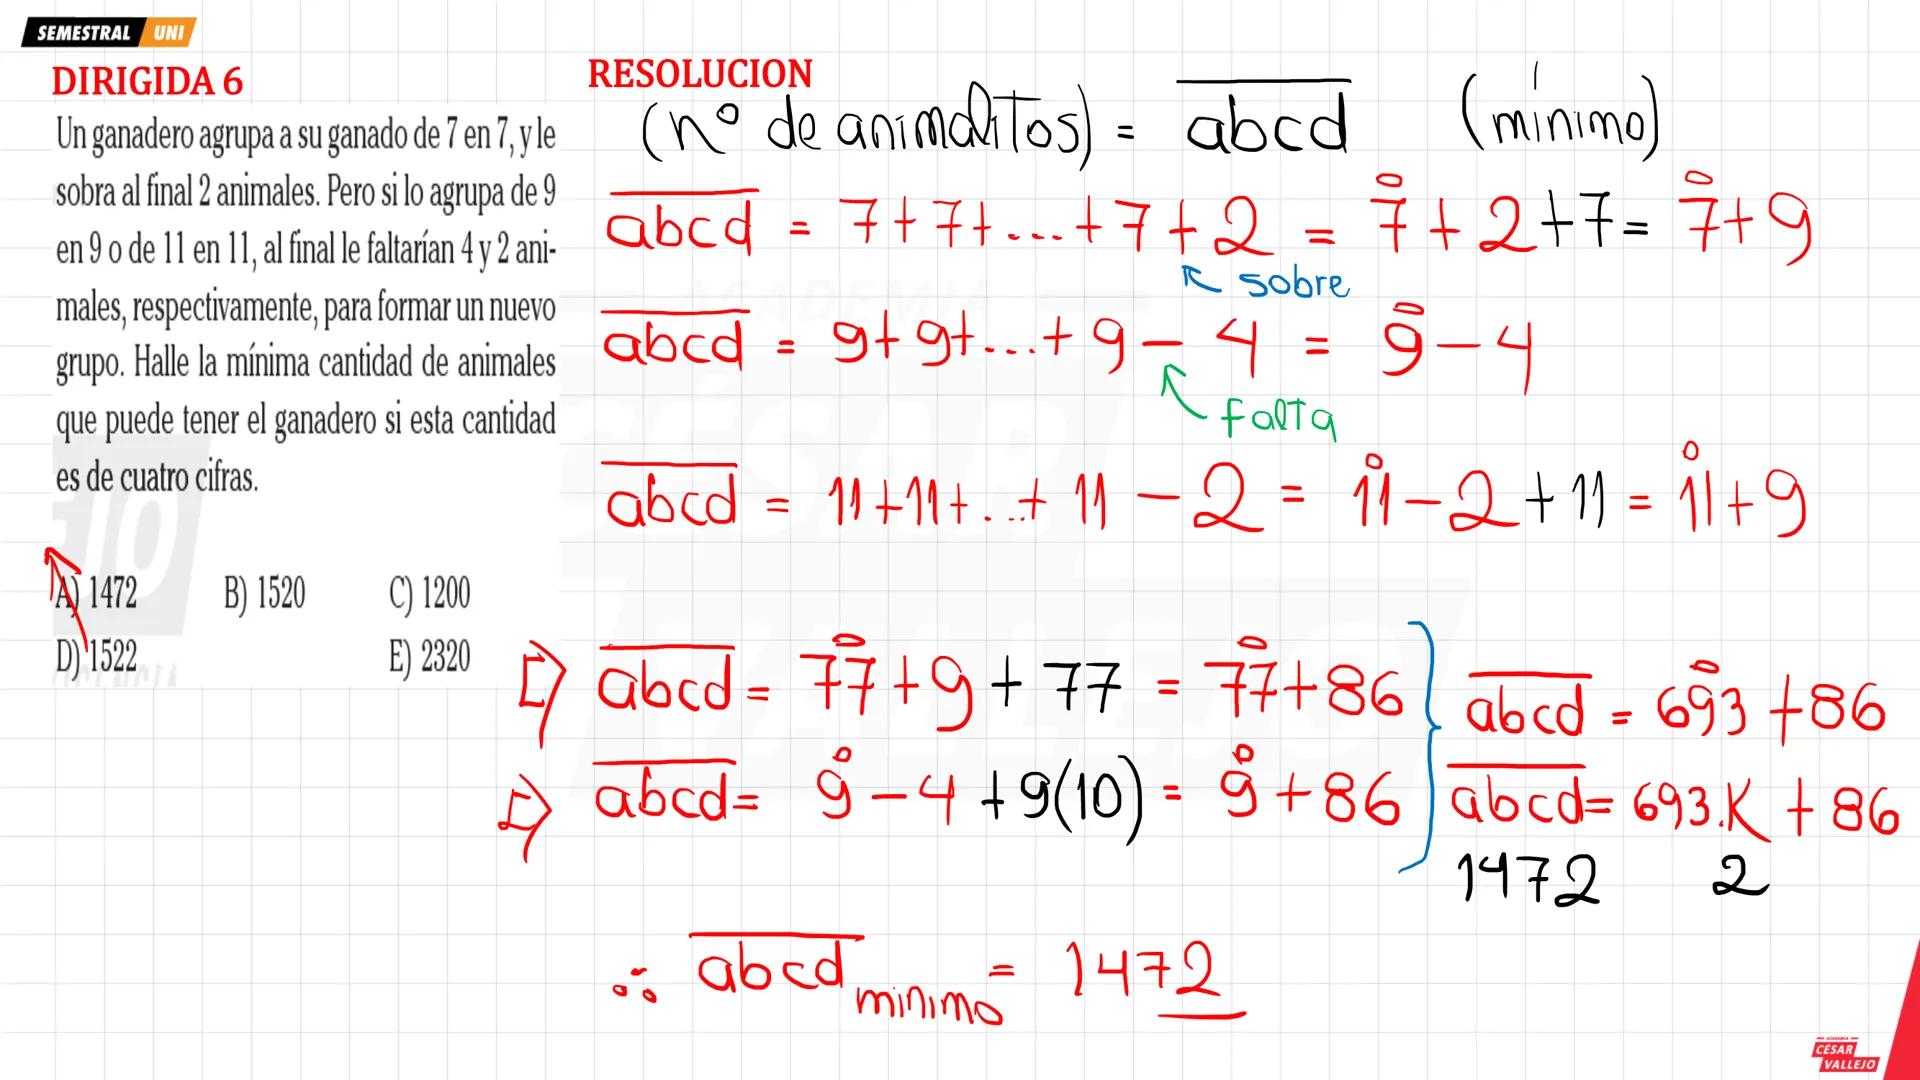 SEMESTRAL UNI
DIRIGIDA 6
Un ganadero agrupa a su ganado de 7 en 7, y le
sobra al final 2 animales. Pero si lo agrupa de 9
en 9 o de 11 en 11, al final le faltarían 4 y 2 ani-
males, respectivamente, para formar un nuevo
grupo. Halle la mínima cantidad de animales
que puede tener el ganadero si esta cantidad
es de cuatro cifras.
A) 1472 B) 1520 C) 1200
D) 1522 E) 2320
RESOLUCION
(nº de animalitos) = abcd (mínimo)
abcd = 7+7+...+7+2 = 7̊+2+7= 7̊+9
sobre
abcd = 9+9+...+9-4 = 9̊-4
falta
abcd = 11+11+...+11-2 = 11̊-2+11 = 11̊+9
abcd = 77̊+9+77 = 77̊+86
abcd= 9̊-4+9(10) = 9̊+86
abcd = 693̊+86
abcd= 693.K+86
1472 2
∴ abcd minimo = 1472
ACADEMIA
CÉSAR
VALLEJO
ACADEMIA
CÉSAR
VALLEJO